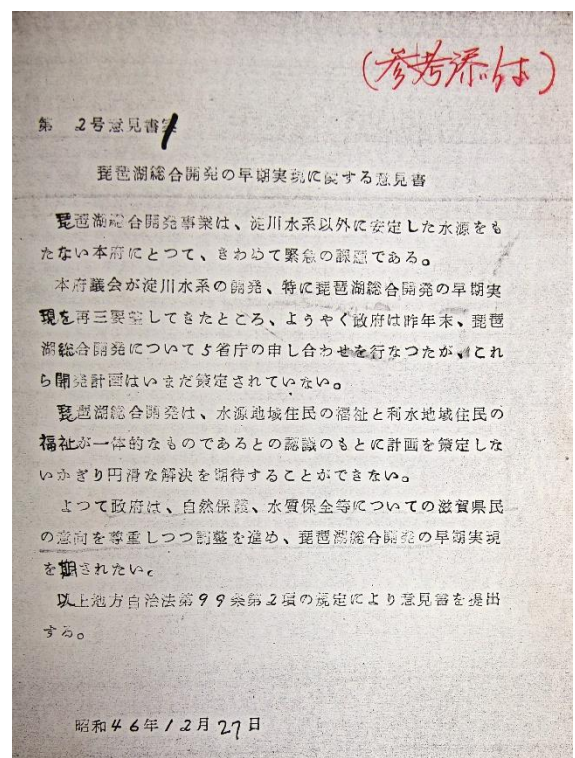 (参考添付)
第 2号意見書案
琵琶湖総合開発の早期実現に関する意見書
琵琶湖総合開発事業は、淀川水系以外に安定した水源をも
たない本府にとつて、きわめて緊急の課題である。
本府議会が淀川水系の開発、特に琵琶湖総合開発の早期実
現を再三要望してきたところ、ようやく政府は昨年末、琵琶
湖総合開発について5省庁の申し合わせを行なつたが、これ
ら開発計画はいまだ策定されていない。
琵琶湖総合開発は、水源地域住民の福祉と利水地域住民の
福祉が一体的なものであるとの認識のもとに計画を策定しな
いかぎり円滑な解決を期待することができない。
よつて政府は、自然保護、水質保全等についての滋賀県民
の意向を尊重しつつ調整を進め、琵琶湖総合開発の早期実現
を期されたい。
以上地方自治法第99条第2項の規定により意見書を提出
する。
昭和46年12月27日